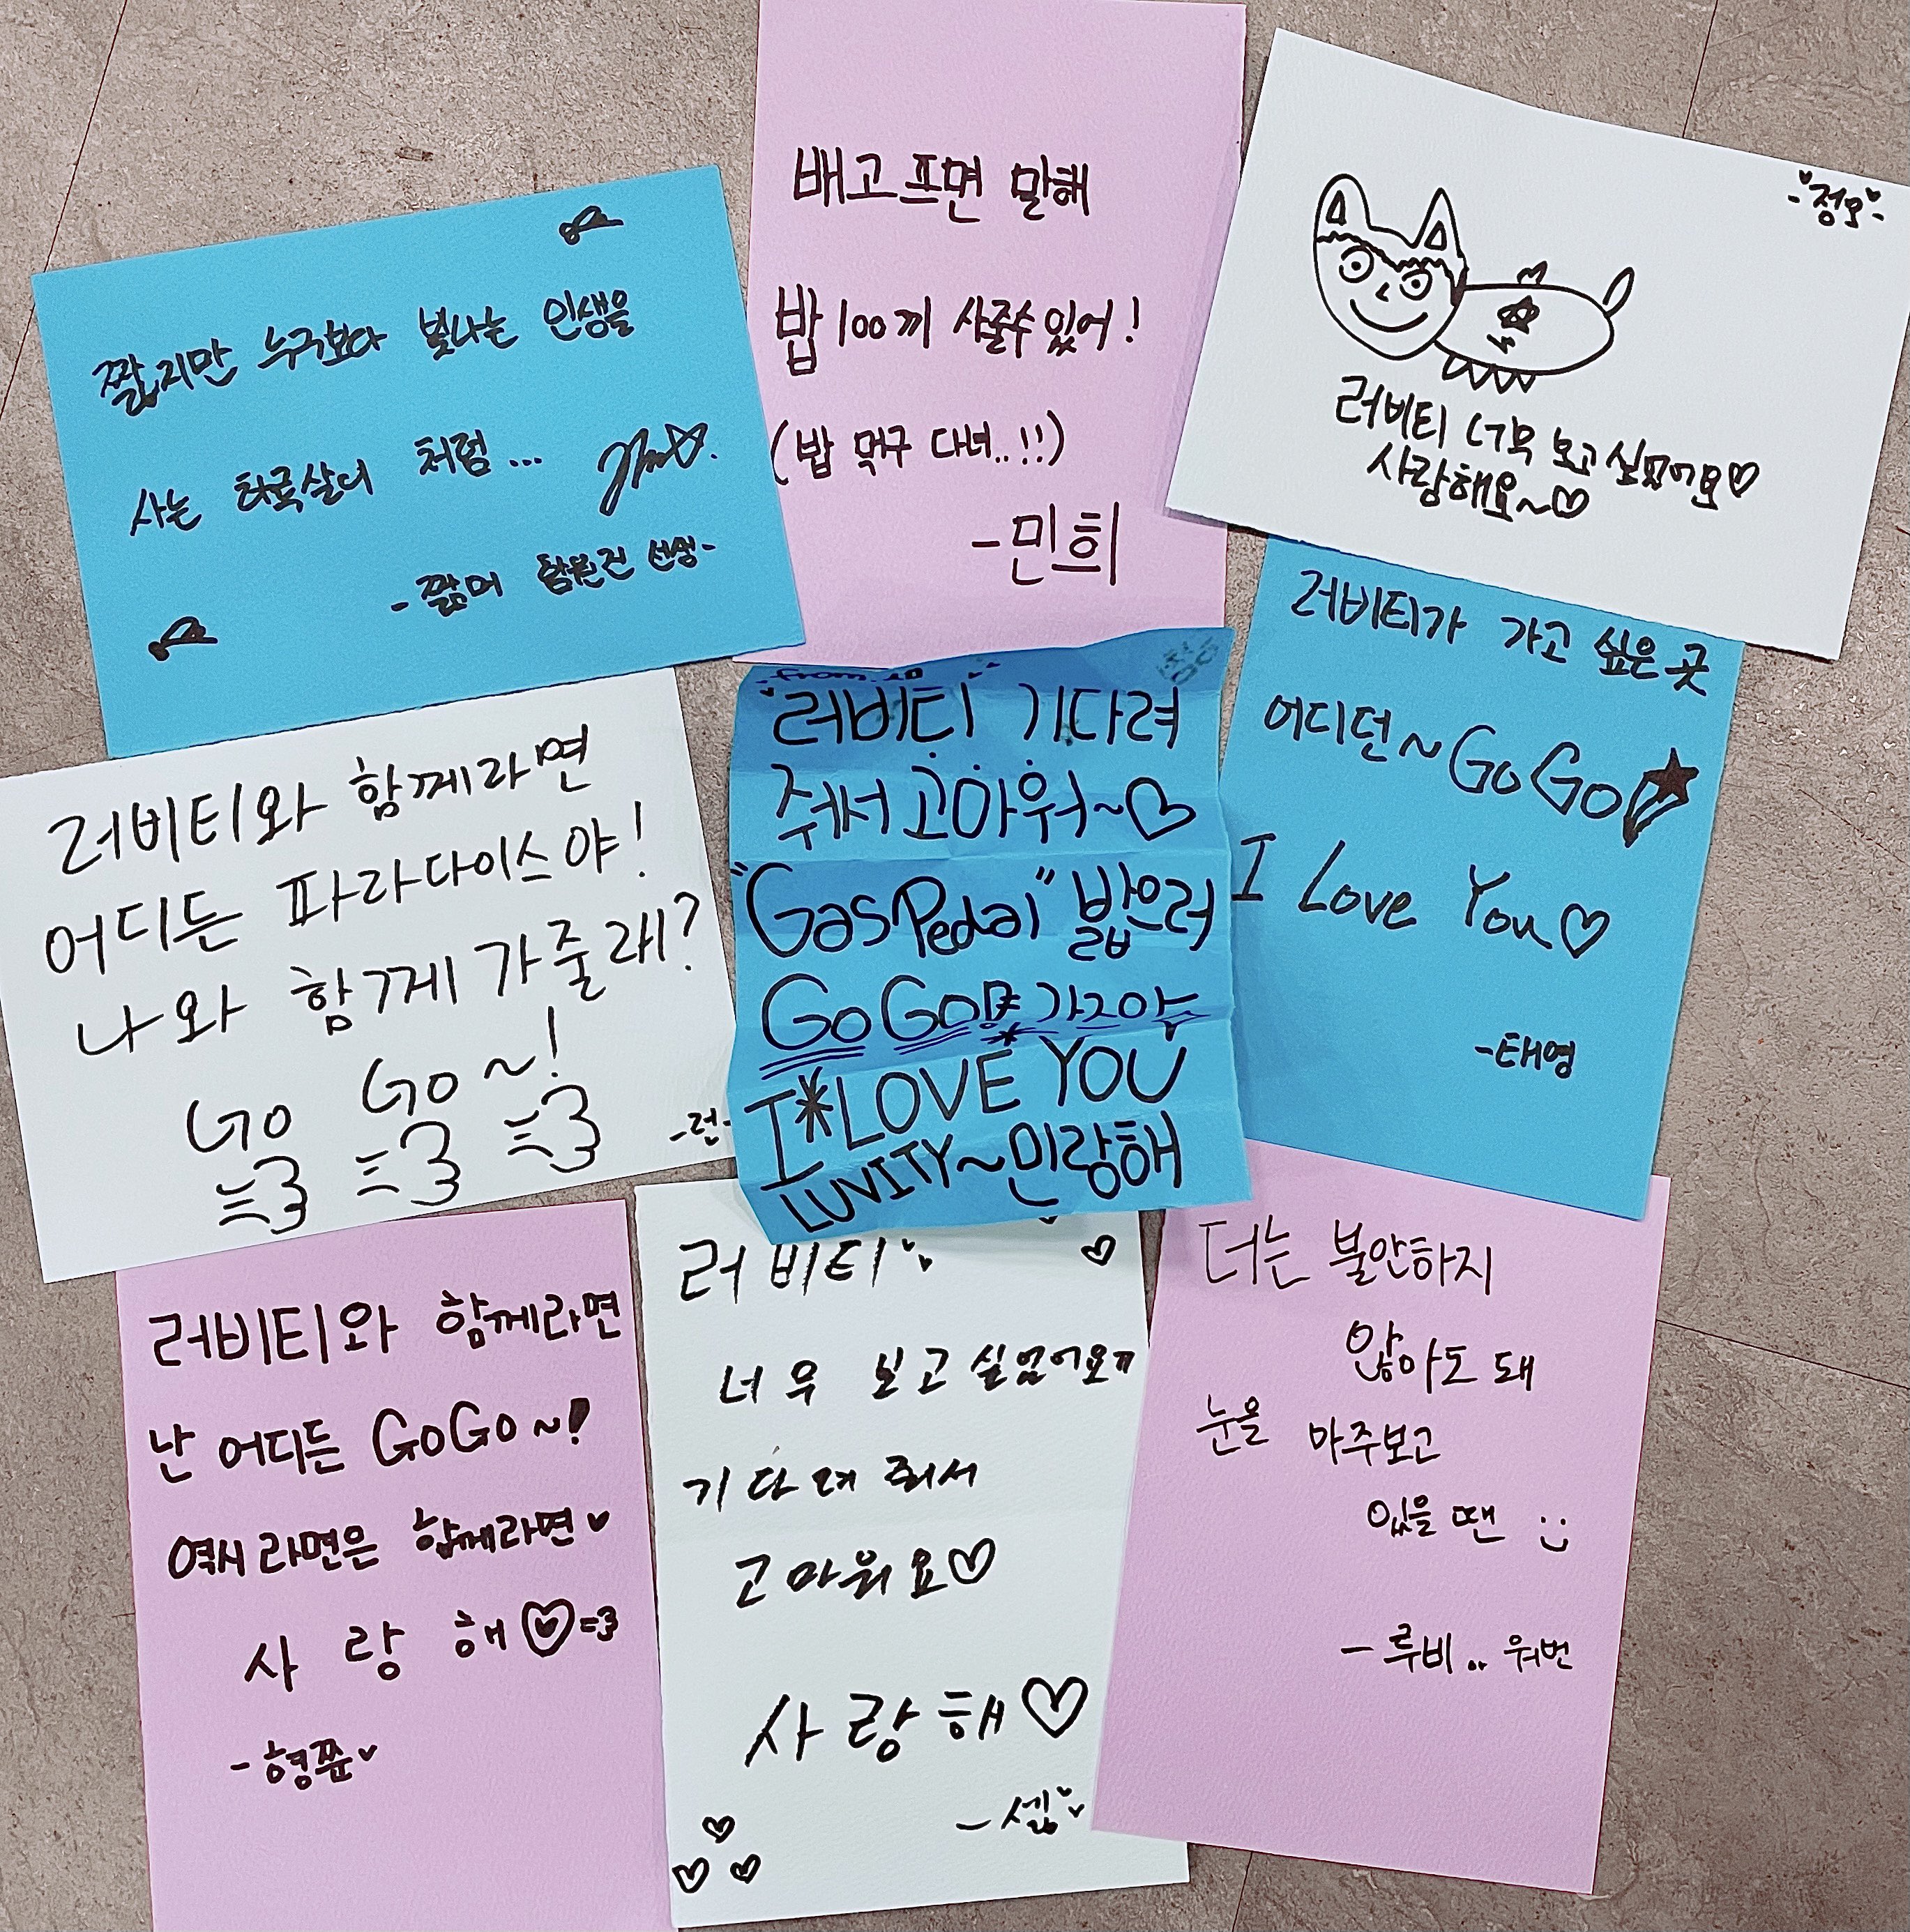 짧지만 누구보다 빛나는 인생을
사는 타룩살디 처럼...
-짧머 함원진 선생-
배고프면 말해
밥 100끼 사줄수있어!
(밥 먹구 다녀..!!)
-민희
-정모-
러비티 너무 보고싶었어요♡
사랑해요~♡
러비티와 함께라면
어디든 파라다이스야!
나와 함께 가줄래?
GO GO~!
-런-
from.
러비티 기다려
줘서 고마워~♡
"Gas Pedal" 밟으러
GoGo 가즈아
I*LOVE YOU
LUVITY~민랑해
러비티가 가고 싶은 곳
어디던~GoGo
I Love You♡
-태영
러비티와 함께라면
난 어디든 GoGo~!
역시 라면은 함께라면♥
사랑해♡=3
-형쭌♥
러비티
너무 보고싶었어요ㅠ
기다려 줘서
고마워요♡
사랑해♡
-셉
더는 불안하지
않아도 돼
눈을 마주보고
있을 땐 :)
-루비.. 워번